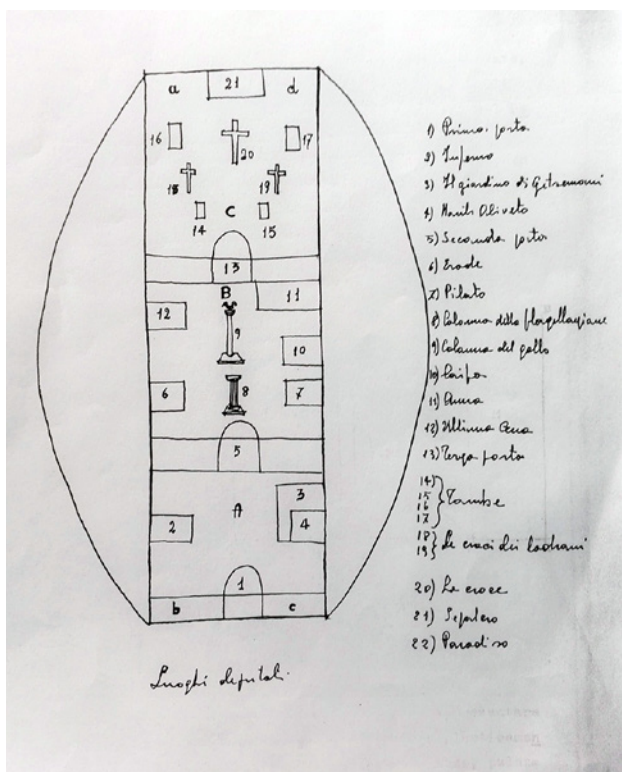 a 21 d
16 20 17
18 19
14 C 15
13
B
12 11
9
10
6 8 7
5
A 3
2 4
1
b c
Luoghi deputati.
1) Prima porta
2) Inferno
3) Il giardino di Getsemani
4) Monte Oliveto
5) Seconda porta
6) Erode
7) Pilato
8) Colonna della flagellazione
9) Colonna del gallo
10) Caifa
11) Anna
12) Ultima Cena
13) Terza porta
14)
15
16 Tombe
17
18
19 Le croci dei ladroni
20) La croce
21) Sepolcro
22) Paradiso